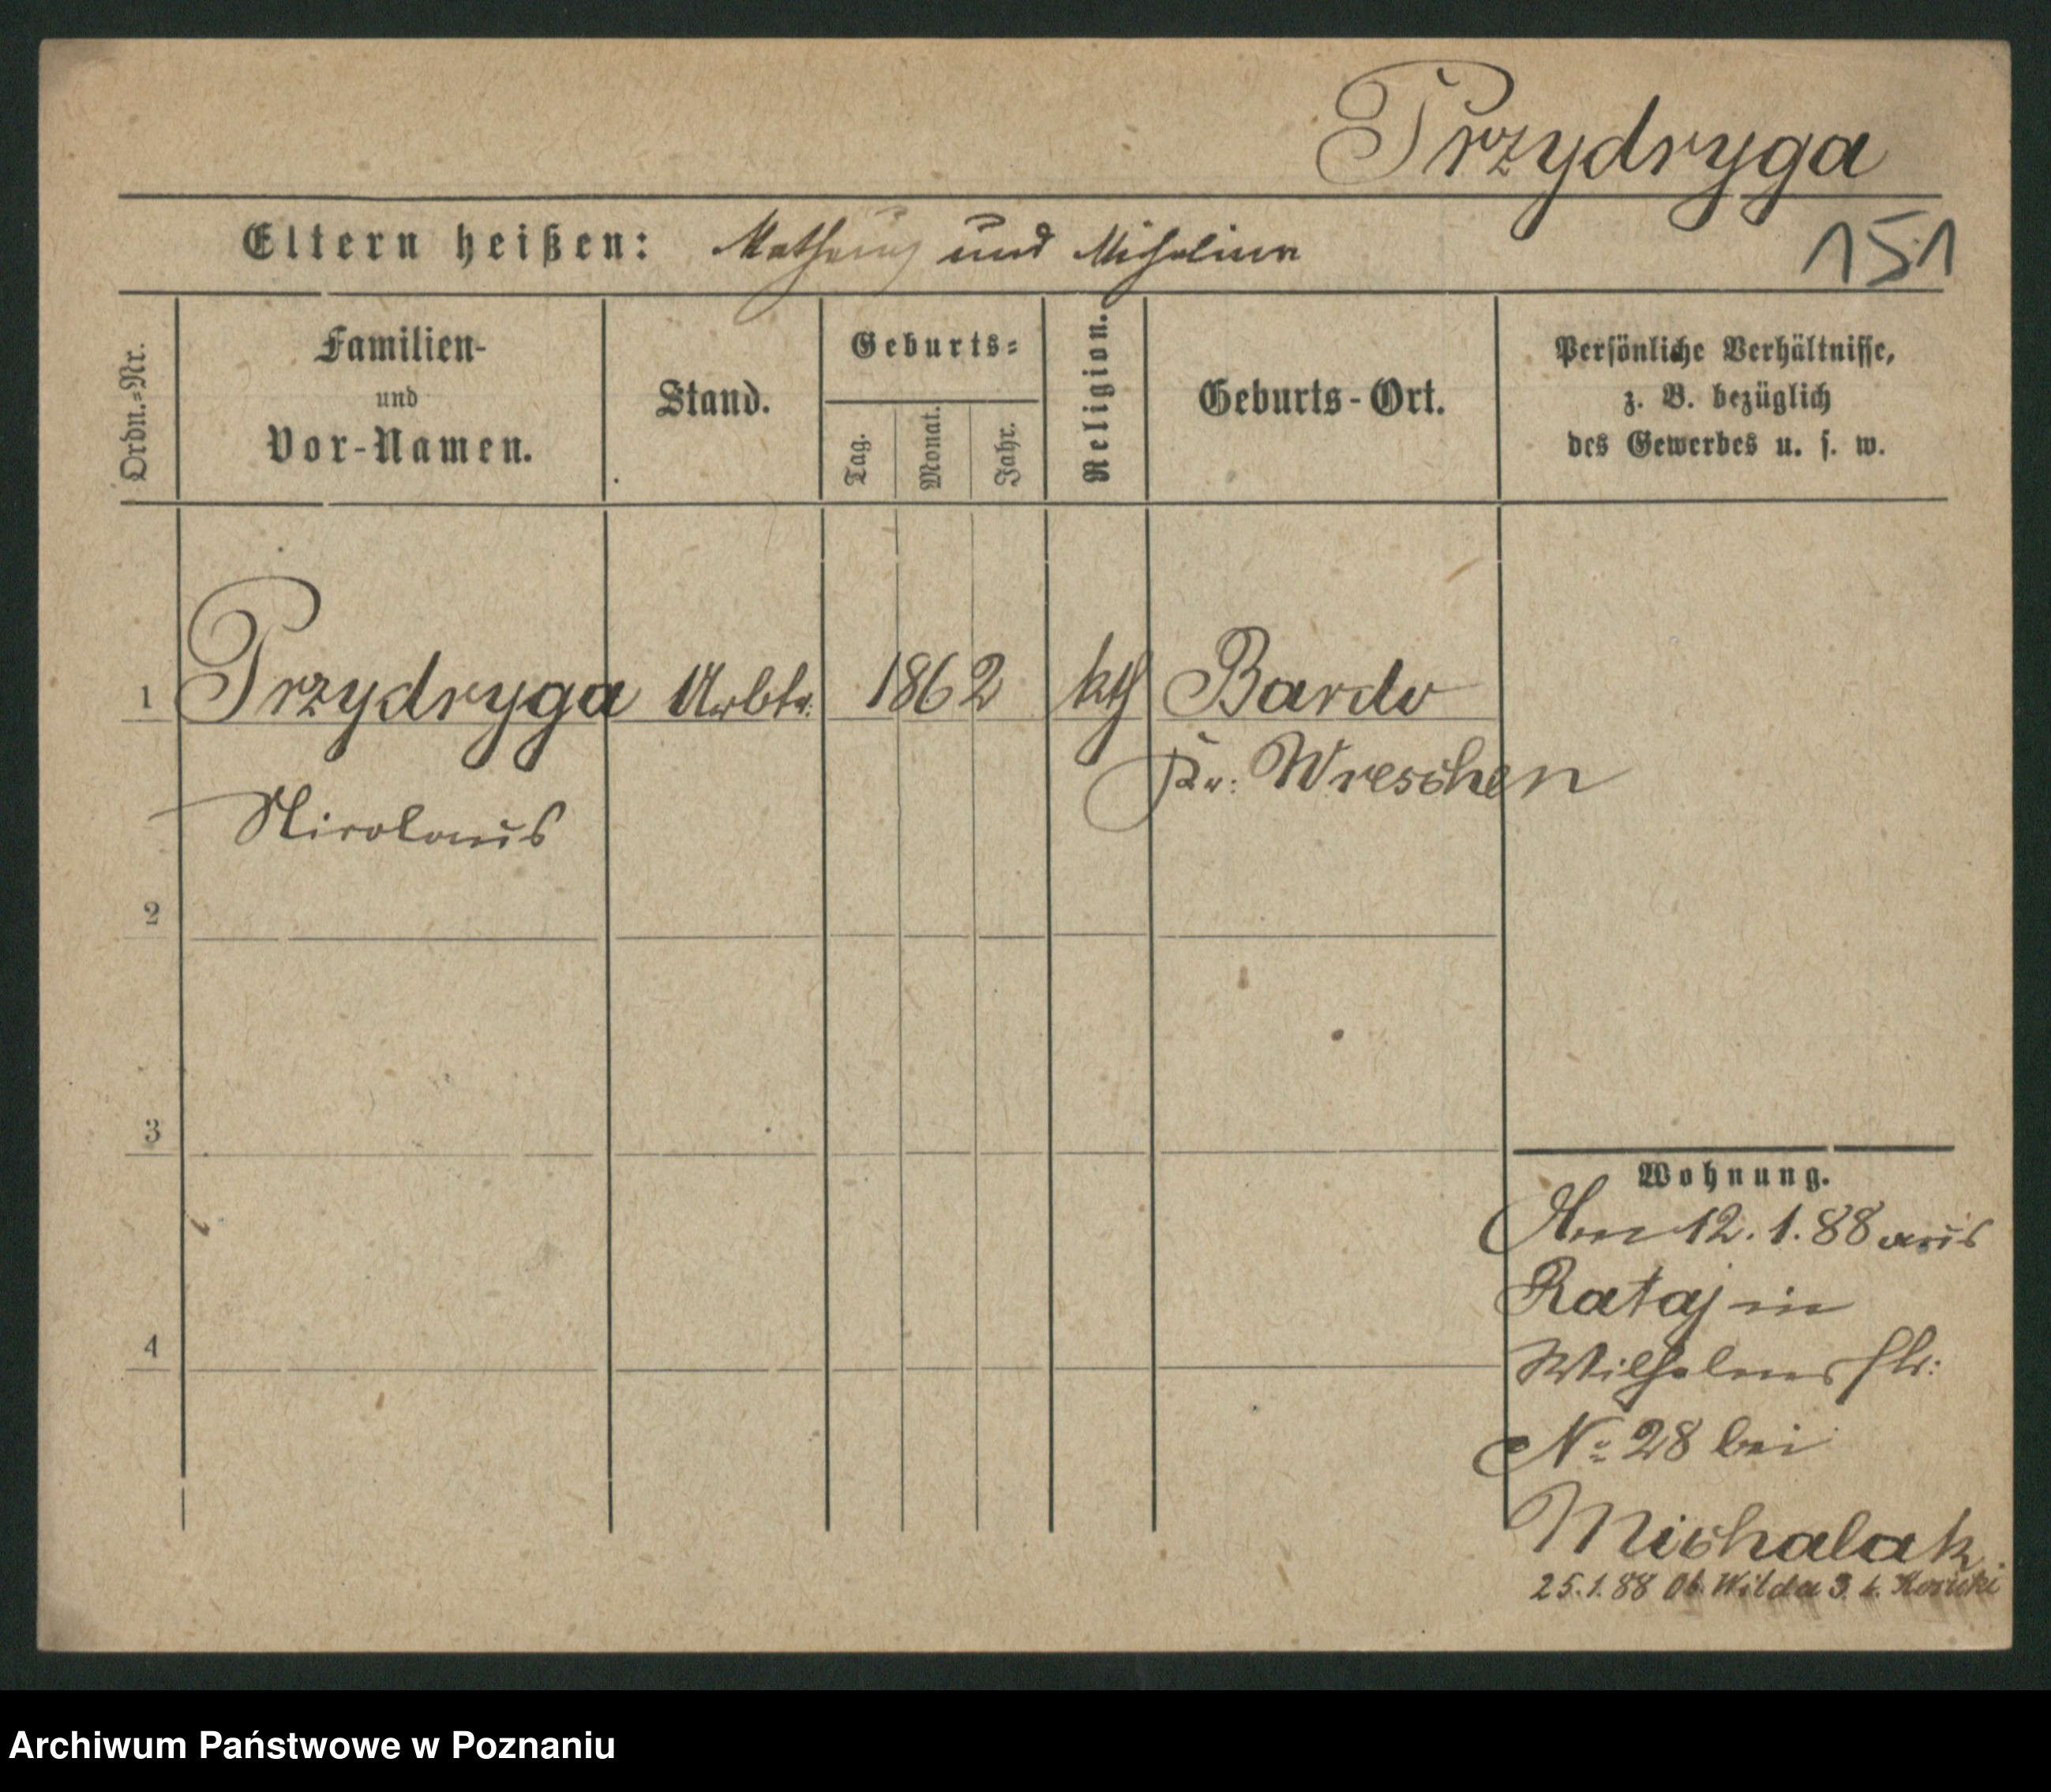 Przydryga
Eltern heißen: Matheus und Michalina
151
Ordn.-Nr.
Familien-
und
Vor-Namen.
Stand.
Geburts-
Tag.
Monat.
Jahr.
Religion.
Geburts-Ort.
Persönliche Verhältnisse,
z. B. bezüglich
des Gewerbes u. s. w.
1 Przydryga Arbtr. 1862 kth Bardo
Kr: Wreschen
Nicolaus
2
3
4
Wohnung.
Am 12.1.88 aus
Rataj in
Wilhelms str:
No 28 bei
Michalak
25.1.88 Ob. Wilda 3. b. Kosicki
Archiwum Państwowe w Poznaniu